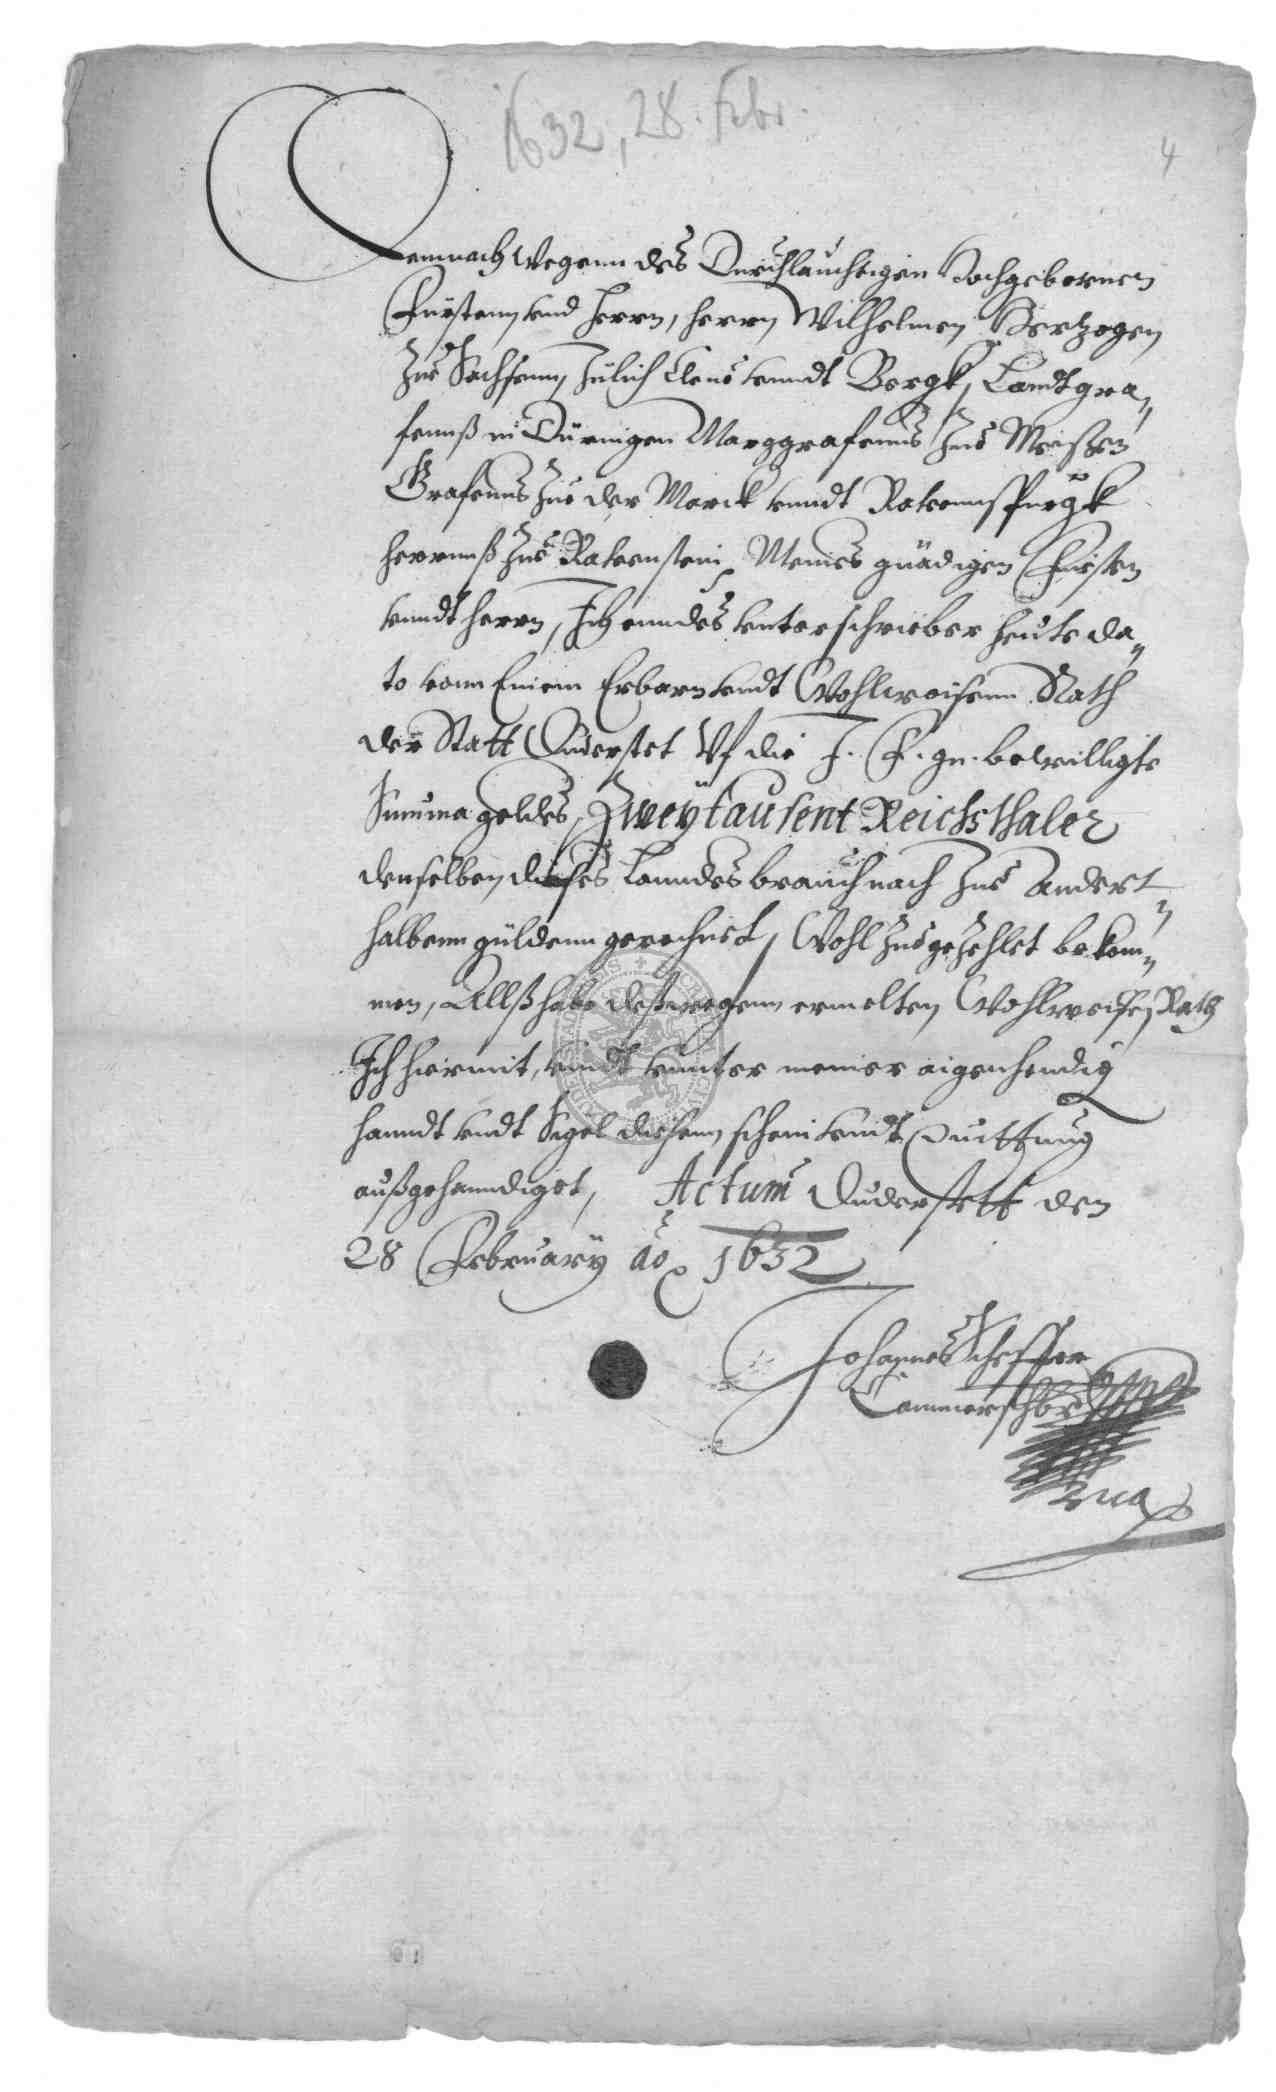 1632, 28. Febr.
4
Demnach wegenn des Durchlauchtigen Hochgebornen
Fürstenn und Herrn, Herrn Wilhelmen Hertzogen
zue Sachsenn, Jülich Cleue unndt Bergk, Landtgra„
fennß in Düringen Marggrafenns zue Meißen
Grafenns zue der Marck unndt Rauennspurgk
Herrnnß zue Rauenstein, Meines gnädigen Fürsten
unndt Herrn, Ich enndes unterschrieber heute da„
to vonn Einem Erbarn undt Wohlweisenn Rath
der Statt Duderstet Vf die I. F. gn. bewilligte
Summa geldes, Zweÿtausent Reichsthaler
denselben, dieses Lanndes brauch nach zue andert„
halbenn gülden gerechnet, Wohl zuegezehlet bekom„
men, Allß habe deßwegenn ermelten Wohlweisen Rath
Ich hiermit, undt unnter meiner eigenhendig
handt undt Sigel diesenn schein undt Quittung
außgehenndiget, Actum Duderstett den
28 February ao 1632
Johannes Scheffer
Cammerschbr
mea